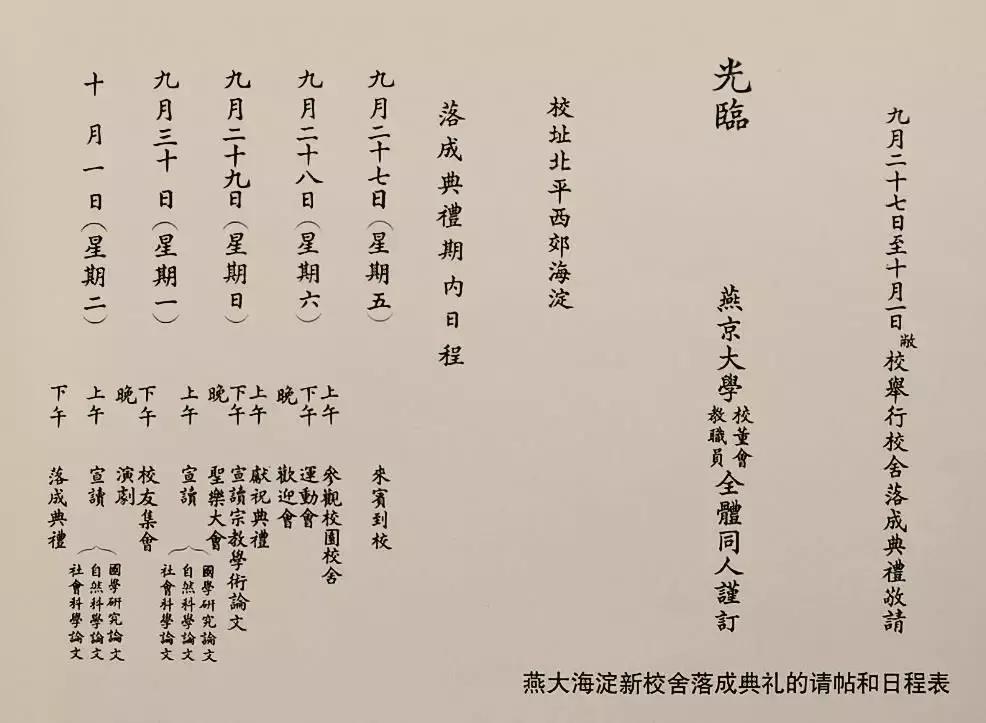 九月二十七日至十月一日敝校舉行校舍落成典禮敬請
光臨
燕京大學校董會教職員全體同人謹訂
校址北平西郊海淀
落成典禮期內日程
九月二十七日(星期五) 來賓到校
九月二十八日(星期六) 上午 參觀校園校舍
下午 運動會
晚 歡迎會
九月二十九日(星期日) 上午 獻祝典禮
下午 宣讀宗教學術論文
晚 聖樂大會
九月三十日(星期一) 上午 宣讀
國學研究論文
自然科學論文
社會科學論文
下午 校友集會
晚 演劇
十月一日(星期二) 上午 宣讀
國學研究論文
自然科學論文
社會科學論文
下午 落成典禮
燕大海淀新校舍落成典礼的请帖和日程表